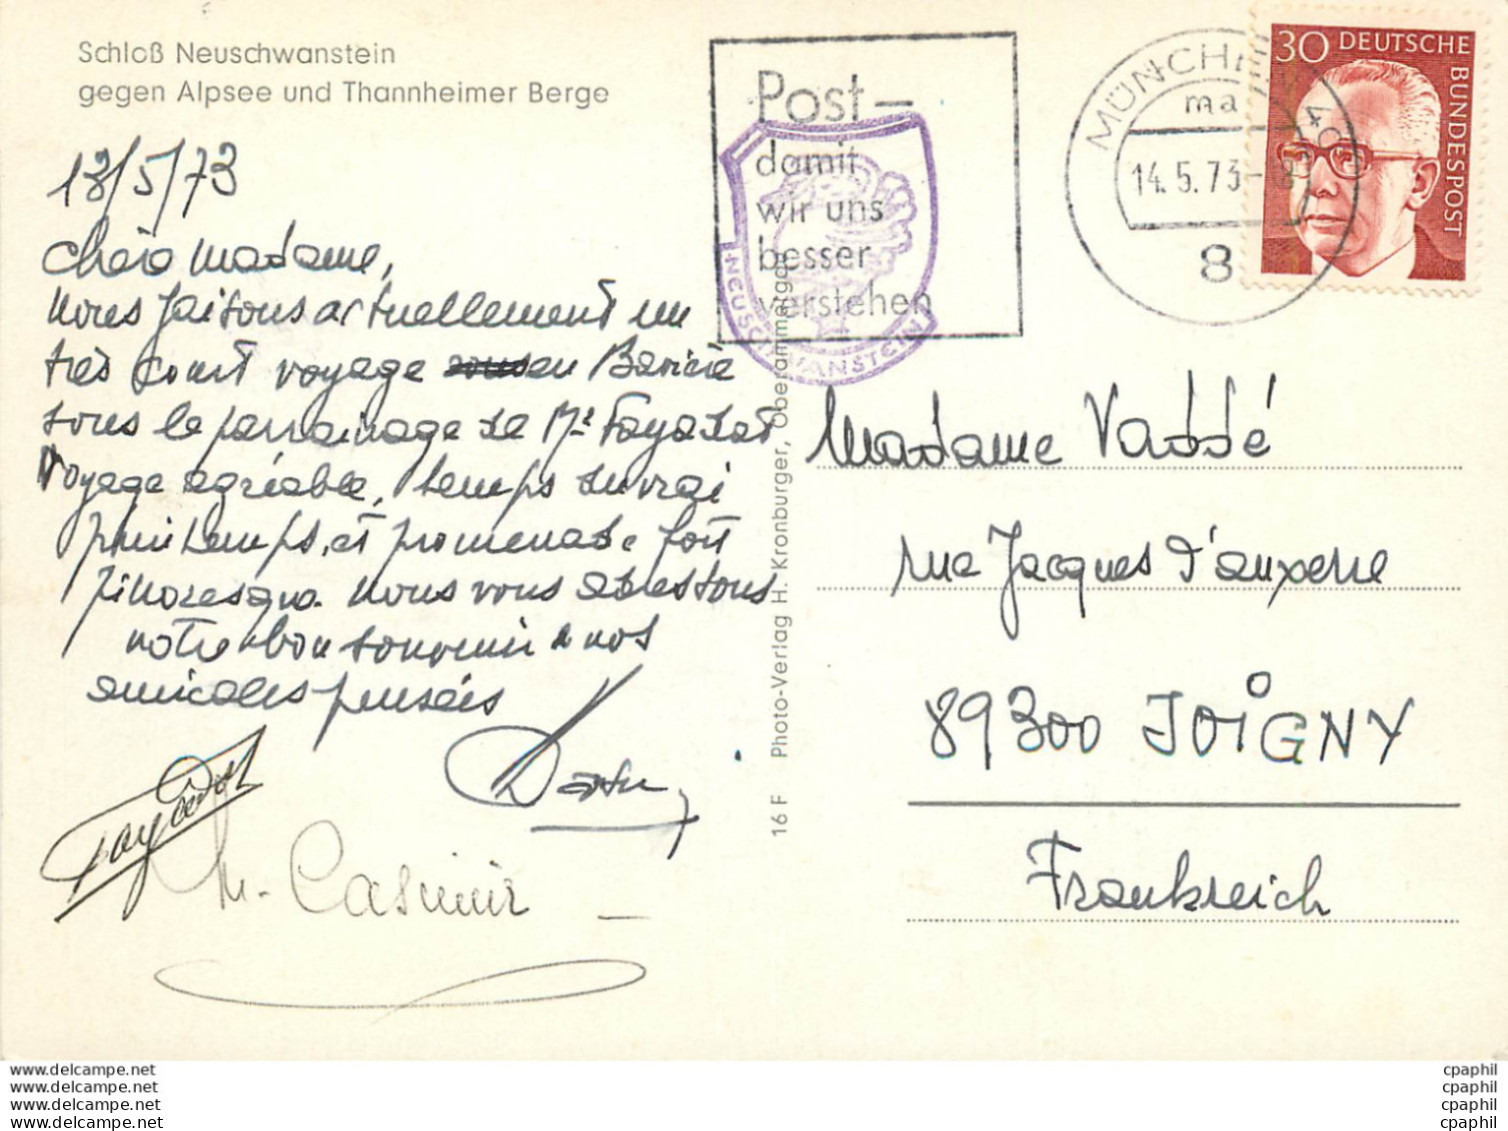 Schloß Neuschwanstein
gegen Alpsee und Thannheimer Berge
13/5/73
Chère Madame,
nous faisons actuellement un
très court voyage en Bavière
sous le parrainage de Mr Fayadat
Voyage agréable, temps du vrai
printemps, et promenade fort
pittoresque. Nous vous adressons
notre bon souvenir & nos
amicales pensées
Fayadat
M. Casimir
16 F Photo-Verlag H. Kronburger, Oberammergau
Post-
damit
wir uns
besser
verstehen
NEUSCHWANSTEIN
MÜNCHEN 40
ma
14.5.73-18
8
30 DEUTSCHE
BUNDESPOST
Madame Vaddé
rue Jacques d'auxerre
89300 JOIGNY
Frankreich
www.delcampe.net
www.delcampe.net
www.delcampe.net
www.delcampe.net
cpaphil
cpaphil
cpaphil
cpaphil